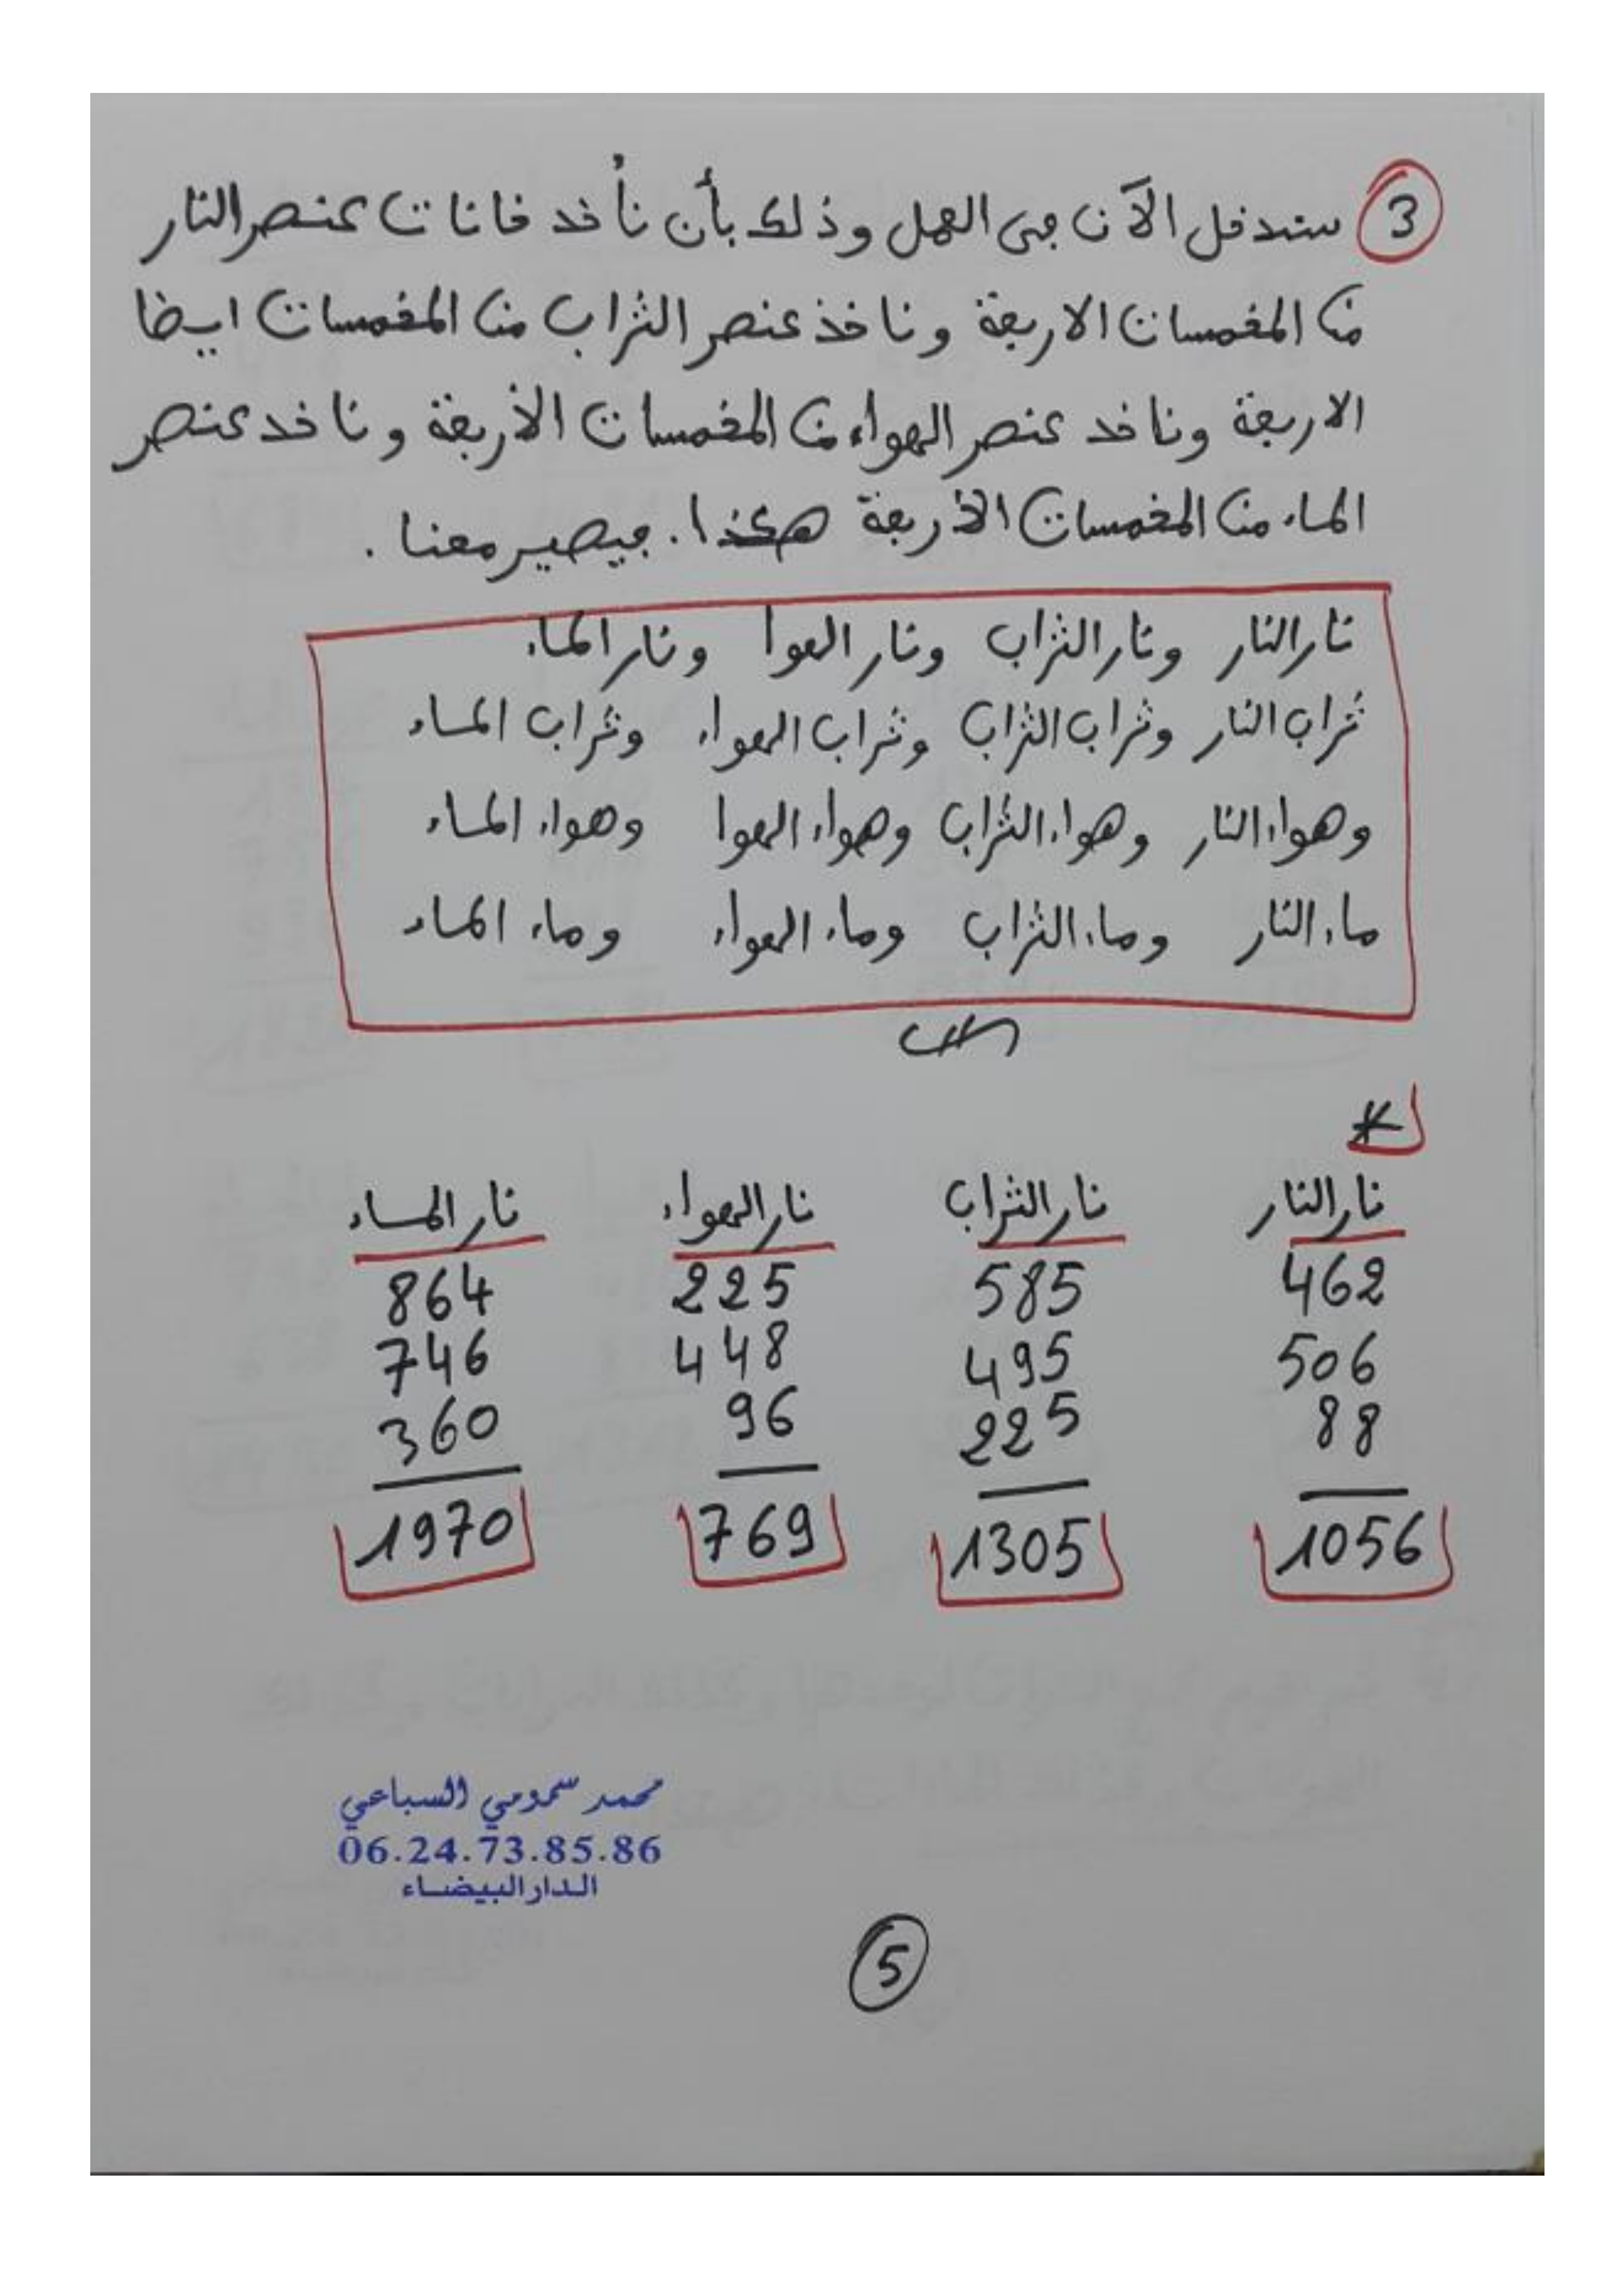 3 سندخل الآن في العمل وذلك بأن نأخد خانات عنصر النار
من المخمسات الاربعة وناخذ عنصر التراب من المخمسات ايضا
الاربعة وناخد عنصر الهواء من المخمسات الأربعة وناخد عنصر
الماء من المخمسات الأربعة هكذا. فيصير معنا.
نار النار ونار التراب ونار الهوا ونار الماء
تراب النار وتراب التراب وتراب الهواء وتراب الماء
وهواء النار وهواء التراب وهواء الهوا وهواء الماء
ماء النار وماء التراب وماء الهواء وماء الماء
*
نار النار نار التراب نار الهواء نار الماء
462 585 225 864
506 495 448 746
88 225 96 360
1056 1305 769 1970
محمد سمومي السباعي
06.24.73.85.86
الدار البيضاء
5